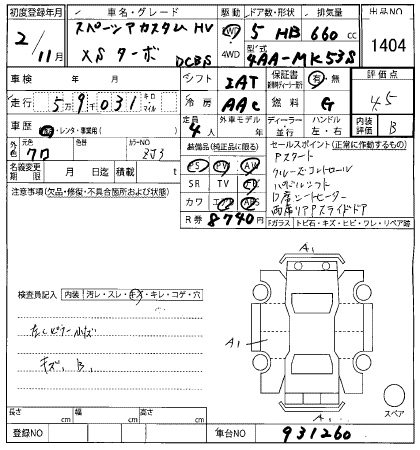 初度登録年月 車名・グレード 駆動 ドア数・形状 排気量 出品NO
2/11月 スペーシアカスタム HV XS ターボ DCBS 2WD 4WD 5 HB 660 cc 1404
型式 4AA-MK53S
車検 年 月 シフト IAT 保証書 有・無 評価点
走行 5万9千031 キロ・マイル 冷房 AAC 燃料 G 4.5
車歴 自家・レンタ・事業用( ) 定員 4人 外車モデル 年 ディーラー 並行 ハンドル 左・右 内装 B
外色 元色 クロ 色替 カラーNO ZJ3
装備品(純正品に限る) セールスポイント(正常に作動するもの)
名義変更期限 月 日迄 積載 t
PS PW AW
SR TV
カワ エアB ABS
R券 8740円
Pスタート
クルーズコントロール
パドルシフト
D席シートヒーター
両席リアPスライドドア
注意事項(欠品・修復・不具合箇所および状態)
Fガラス トビ石・キズ・ヒビ・ワレ・リペア跡
検査員記入 内装 汚レ・スレ・キズ・キレ・コゲ・穴
キズ、B、
A1
A1
A1
スペア
長さ cm 幅 cm 高さ cm
登録NO 車台NO 931260